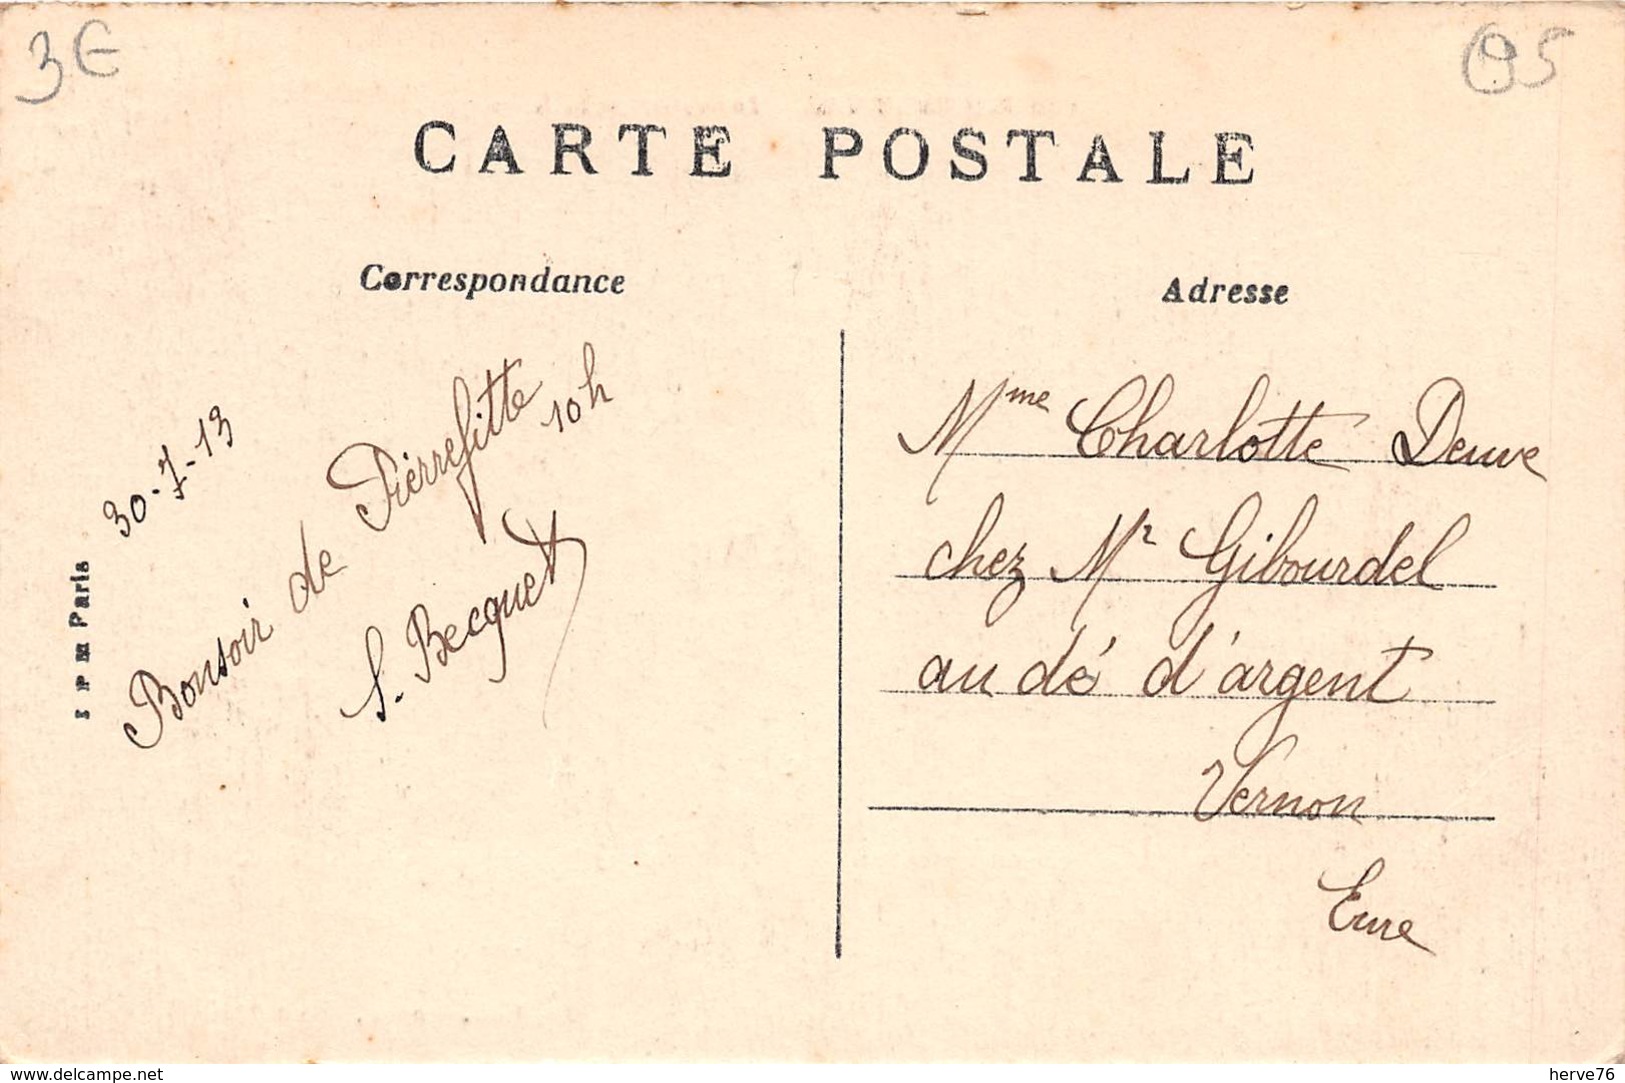 3€
95
CARTE POSTALE
Correspondance
Adresse
30-7-13
Bonsoir de Pierrefitte
10h
S. Becquet
Mme Charlotte Deuve
chez Mr Gibourdel
au dé d'argent
Vernon
Eure
Paris
www.delcampe.net
herve76